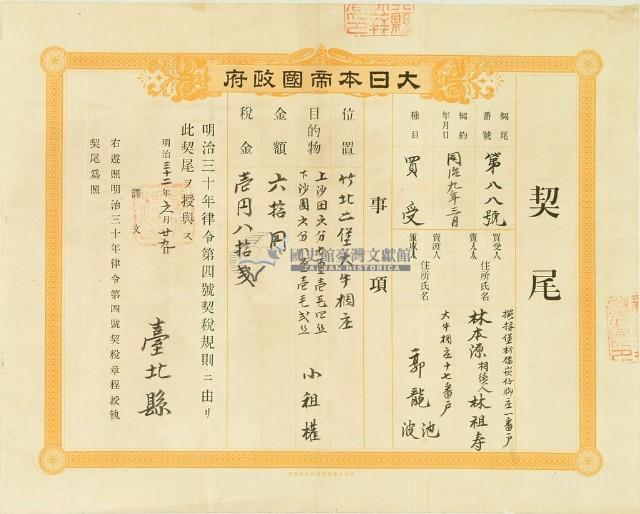 大日本帝國政府
契尾
契尾番號
第八八號
契約年月日
同治九年三月
種目
買受
買受人
典主人
住所氏名
擺接堡枋橋崁仔脚庄一番戶
林本源相續人林祖壽
賣渡人
住所氏名
大牛欄庄十七番戶
郭龍池
波
事項
位置
竹北二堡大牛欄庄
目的物
上沙田六分
下沙園六分
小租權
金額
六拾円
稅金
壱円八拾戔
明治三十年律令第四號契稅規則ニ由リ
此契尾ヲ授與ス
明治三十二年
臺北縣
譯文
右遵照明治三十年律令第四號契稅章程授執
契尾為照
國史館臺灣文獻館
TAIWAN HISTORICA